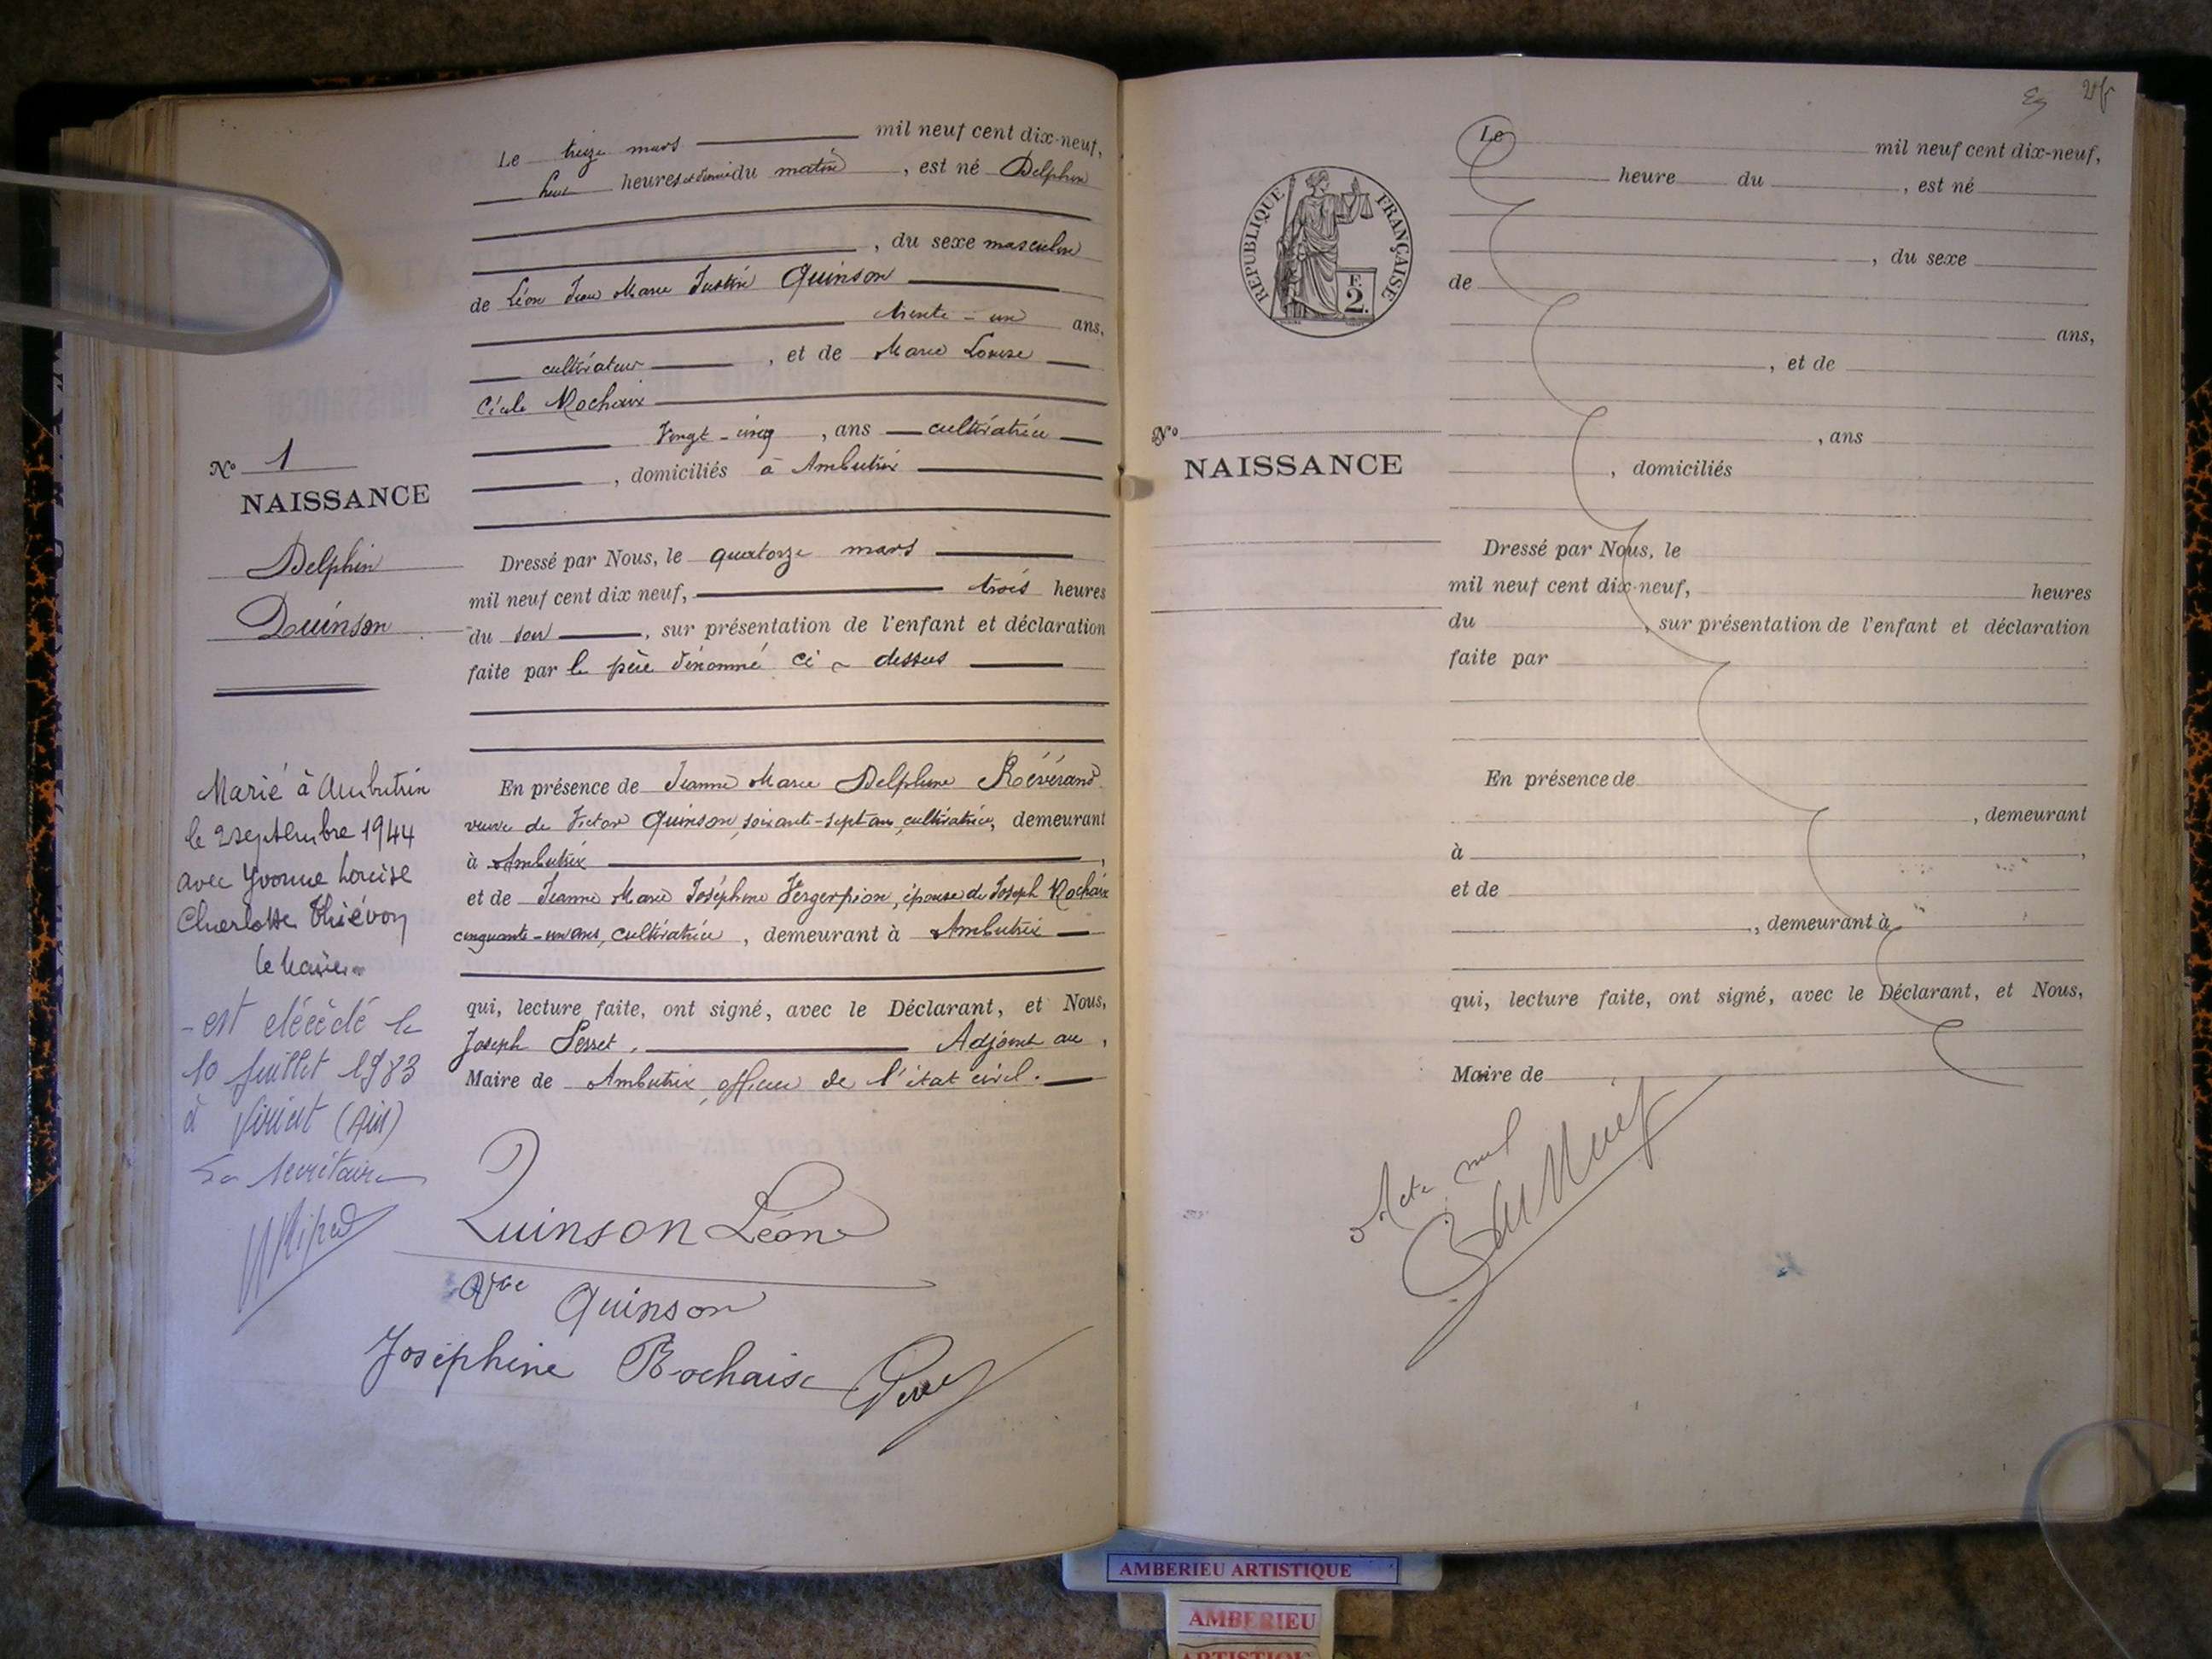 Le treize mars mil neuf cent dix-neuf,
heures et demie du matin, est né Delphin
, du sexe masculin
de Léon Jean Marie Justin Quinson
trente-un ans,
cultivateur, et de Marie Louise
Cécile Rochaix
vingt-cinq, ans cultivatrice
, domiciliés à Ambutrix
N° 1
NAISSANCE
Delphin
Quinson
Dressé par Nous, le quatorze mars
mil neuf cent dix neuf, trois heures
du soir, sur présentation de l'enfant et déclaration
faite par le père dénommé ci-dessus
En présence de Jeanne Marie Delphine Révérand
veuve de Victor Quinson, soixante-sept ans, cultivatrice, demeurant
à Ambutrix,
et de Jeanne Marie Joséphine Vergerpion, épouse de Joseph Rochaix
cinquante-un ans, cultivatrice, demeurant à Ambutrix
qui, lecture faite, ont signé, avec le Déclarant, et Nous,
Joseph Perret, Adjoint au,
Maire de Ambutrix, officier de l'état civil.
Marié à Ambutrix
le 2 septembre 1944
avec Yvonne Louise
Charlotte Thiévon
le Maire
- est décédé le
10 Juillet 1983
à Viriat (Ain)
La secrétaire
Quinson Léon
Vve Quinson
Joséphine Rochaise
Le mil neuf cent dix-neuf,
heure du, est né
, du sexe
de
ans,
, et de
, ans
, domiciliés
REPUBLIQUE FRANÇAISE
F.
2.
N°
NAISSANCE
Dressé par Nous, le
mil neuf cent dix-neuf, heures
du, sur présentation de l'enfant et déclaration
faite par
En présence de
, demeurant
à,
et de
, demeurant à
qui, lecture faite, ont signé, avec le Déclarant, et Nous,
Maire de
Acte nul
AMBERIEU ARTISTIQUE
AMBERIEU
ARTISTIQUE